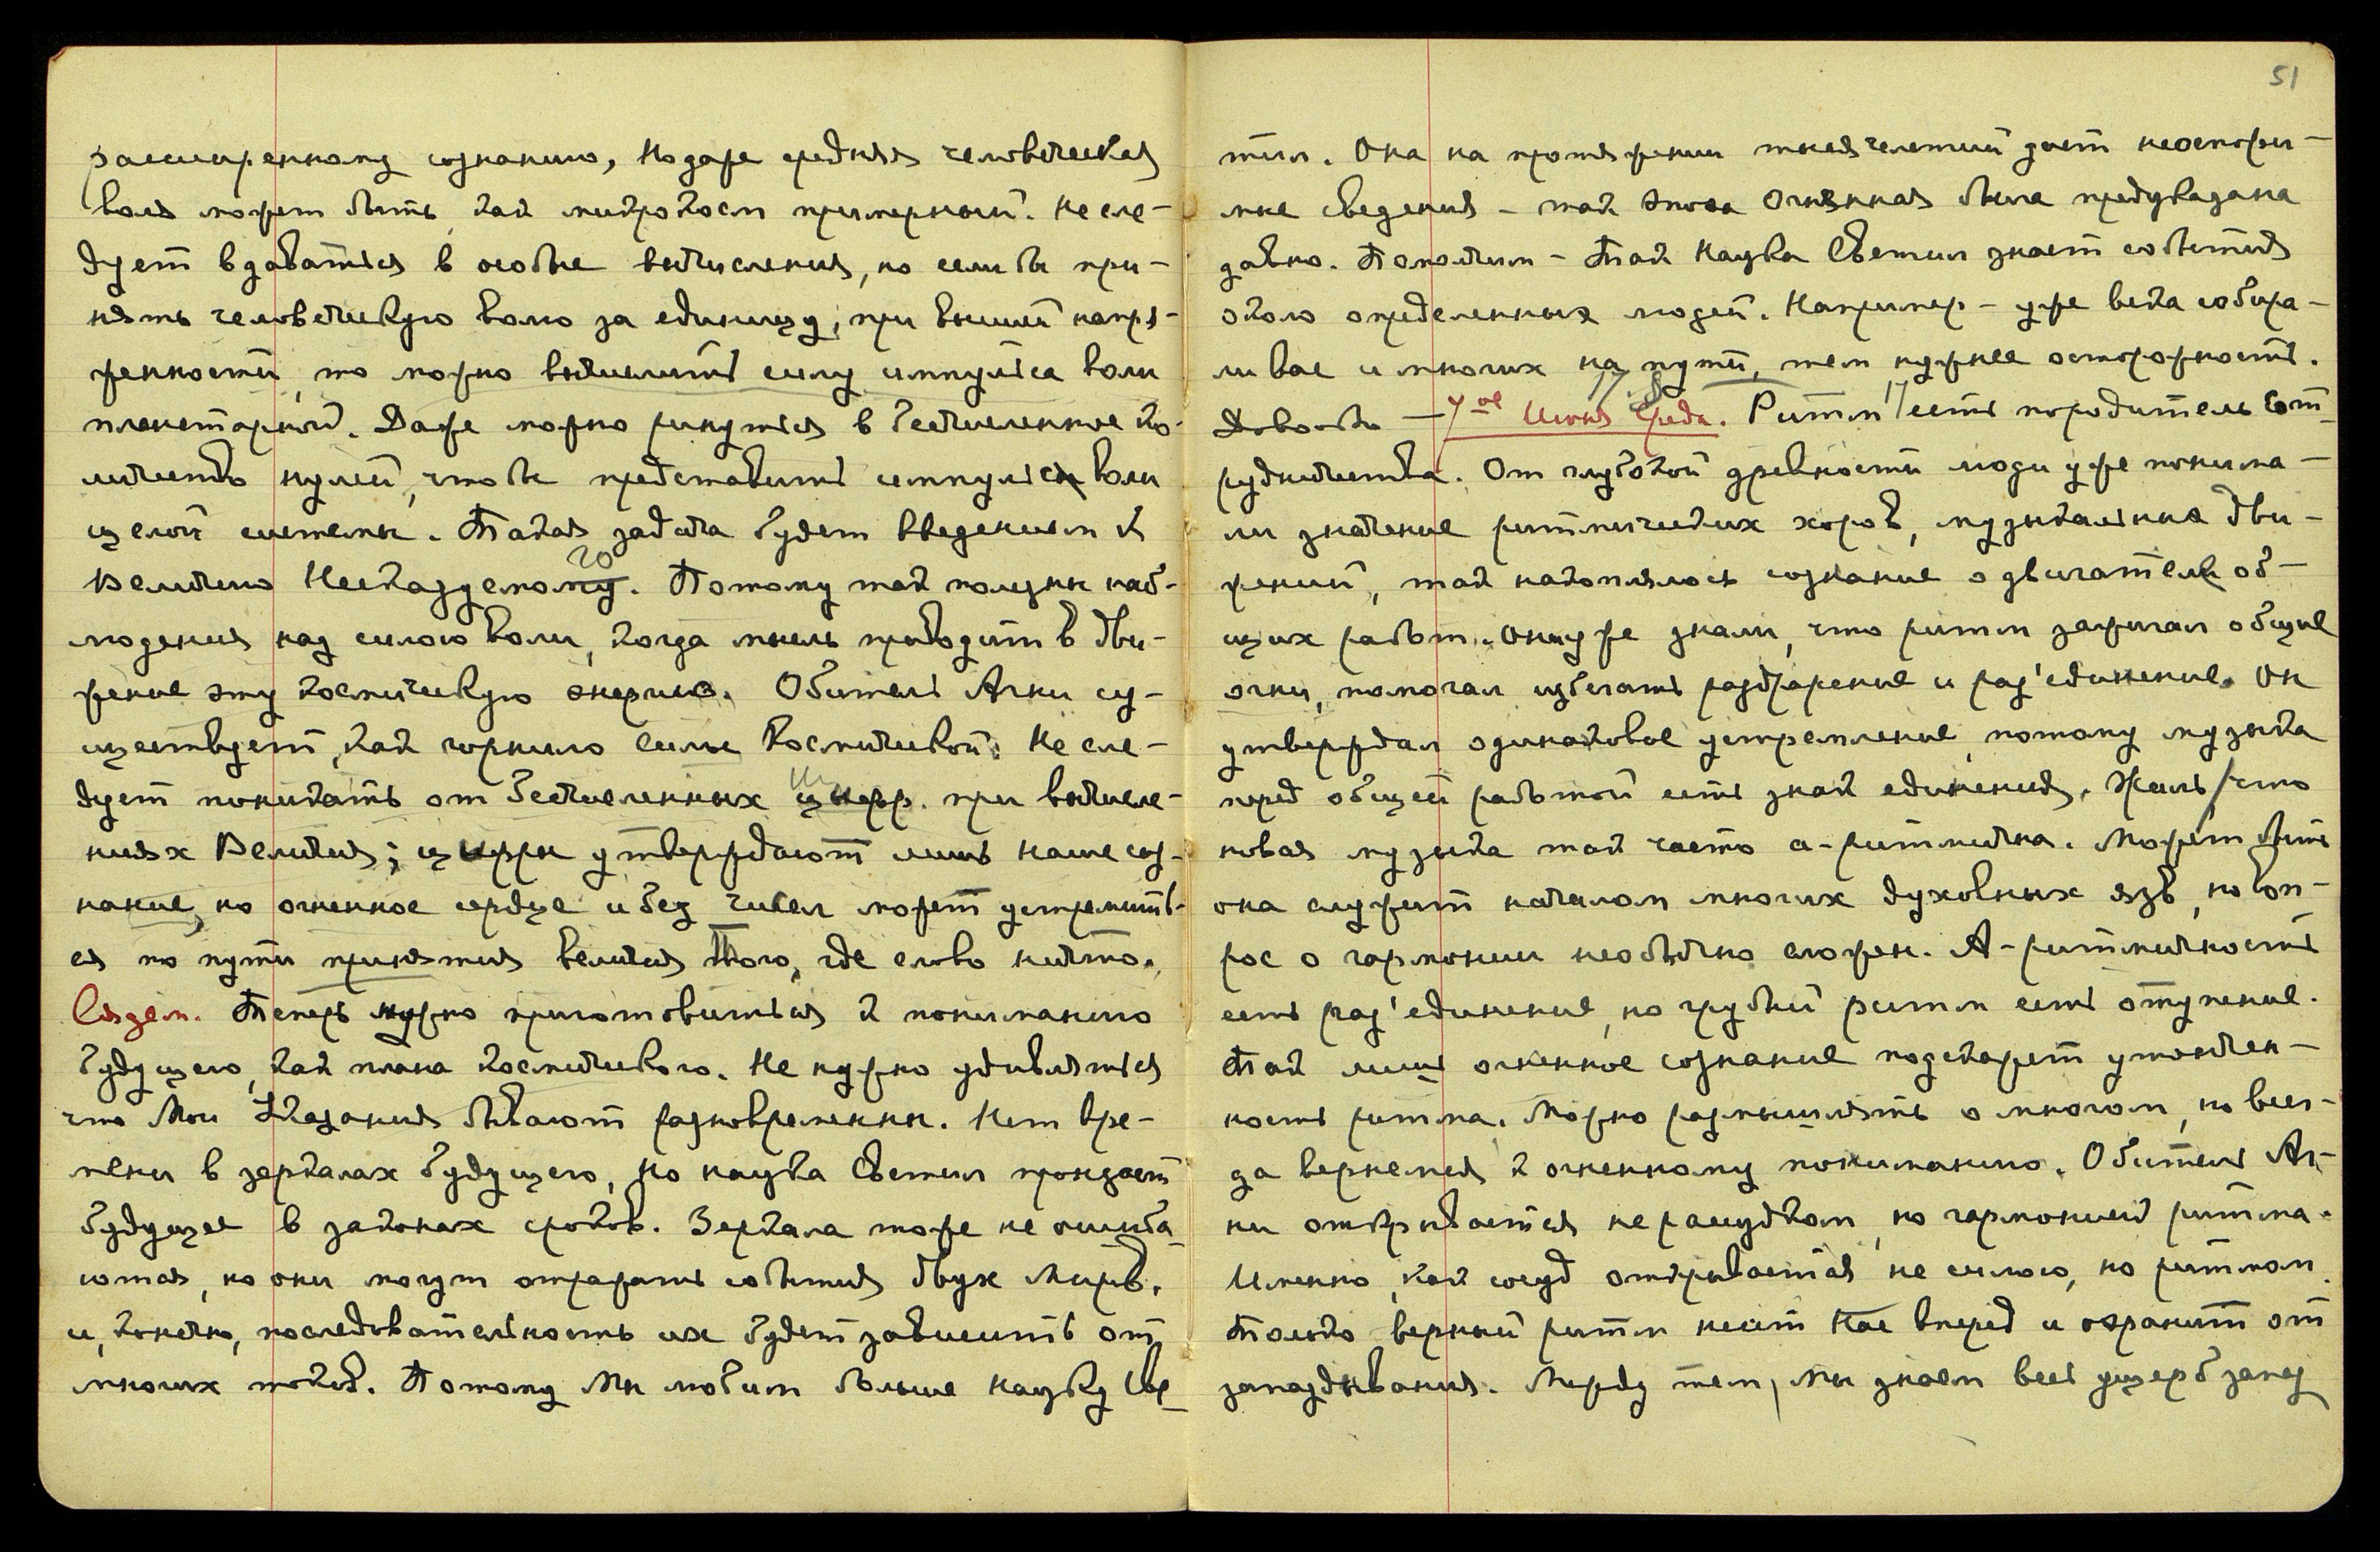 расширенному сознанию, но даже средняя человеческая
воля может быть как микрокосм примерный. Не сле-
дует вдаваться в особые вычисления, но если бы при-
нять человеческую волю за единицу, при высшей напря-
женности, то можно вычислить силу импульса воли
планетарной. Даже можно ринуться в бесчисленное ко-
личество нулей, чтобы представить импульс воли
целой системы. Такая задача будет введением к
Величию Несказуемого. Потому так полезны наб-
людения над силою воли, когда мысль приводит в дви-
жение эту космическую энергию. Обитель Агни су-
ществует, как горнило силы Космической. Не сле-
дует поникать от бесчисленных цифр. при вычисле-
ниях Величия; цифры утверждают лишь наше соз-
нание, но огненное сердце и без чисел может устремить-
ся по пути принятия величия Того, где слово ничто.
Сядем. Теперь нужно приготовиться к пониманию
будущего, как плана космического. Не нужно удивляться
что Мои Указания бывают разновременны. Нет вре-
мени в зеркалах будущего, но наука Светил пронзает
будущее в законах сроков. Зеркала тоже не ошиба
ются, но они могут отражать события двух Миров,
и, конечно, последовательность их будет зависить от
многих токов. Потому Мы любим больше науку Све
51
тил. Она на протяжении тысячелетий дает неоспори-
мые сведения – так эпоха Огненная была предуказана
давно. Помолчим – Так Наука Светил знает события
около определенных людей. Например – уже века собира-
ли вас и многих на пути, тем нужнее осторожность.
17 8
Довольно — 7ое Июня Среда. Ритм есть породитель Сот
рудничества. От глубокой древности люди уже понима-
ли значение ритмических хоров, музыкальные дви-
жений, так накоплялось сознание о двигателе об-
щих работ. Они уже знали, что ритм зажигал общие
огни, помогал избегать раздражение и раз'единение. Он
утверждал одинаковое устремление, потому музыка
перед общей работой есть знак единения. Жаль, что
новая музыка так часто а-ритмична. Может быть
она служит началом многих духовных язв, но воп-
рос о гармонии необычно сложен. А-ритмичность
есть раз'единение, но грубый ритм есть отупение.
Так лишь огненное сознание подскажет утончен-
ность ритма. Можно размышлять о многом, но всег-
да вернемся к огненному пониманию. Обитель Аг-
ни открывается не рассудком, но гармонией ритма.
Именно, как сосуд открывается не силою, но ритмом.
Только верный ритм несет нас вперед и охранит от
запаздывания. Между тем, Мы знаем весь ущерб запаз